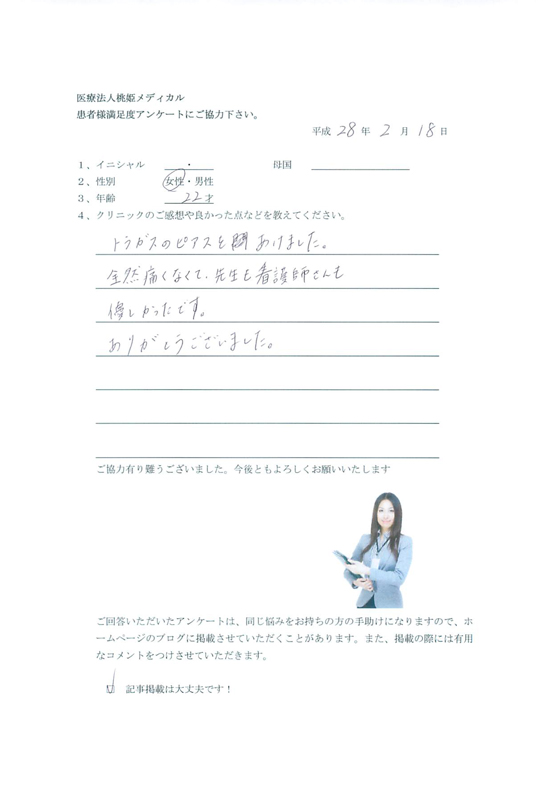 医療法人桃姫メディカル
患者様満足度アンケートにご協力下さい。
平成 28 年 2 月 18 日
1、イニシャル ・ 母国
2、性別 女性・男性
3、年齢 22才
4、クリニックのご感想や良かった点などを教えてください。
トラガスのピアスを あけました。
全然痛くなくて、先生も看護師さんも
優しかったです。
ありがとうございました。
ご協力有り難うございました。今後ともよろしくお願いいたします
ご回答いただいたアンケートは、同じ悩みをお持ちの方の手助けになりますので、ホ
ームページのブログに掲載させていただくことがあります。また、掲載の際には有用
なコメントをつけさせていただきます。
記事掲載は大丈夫です！